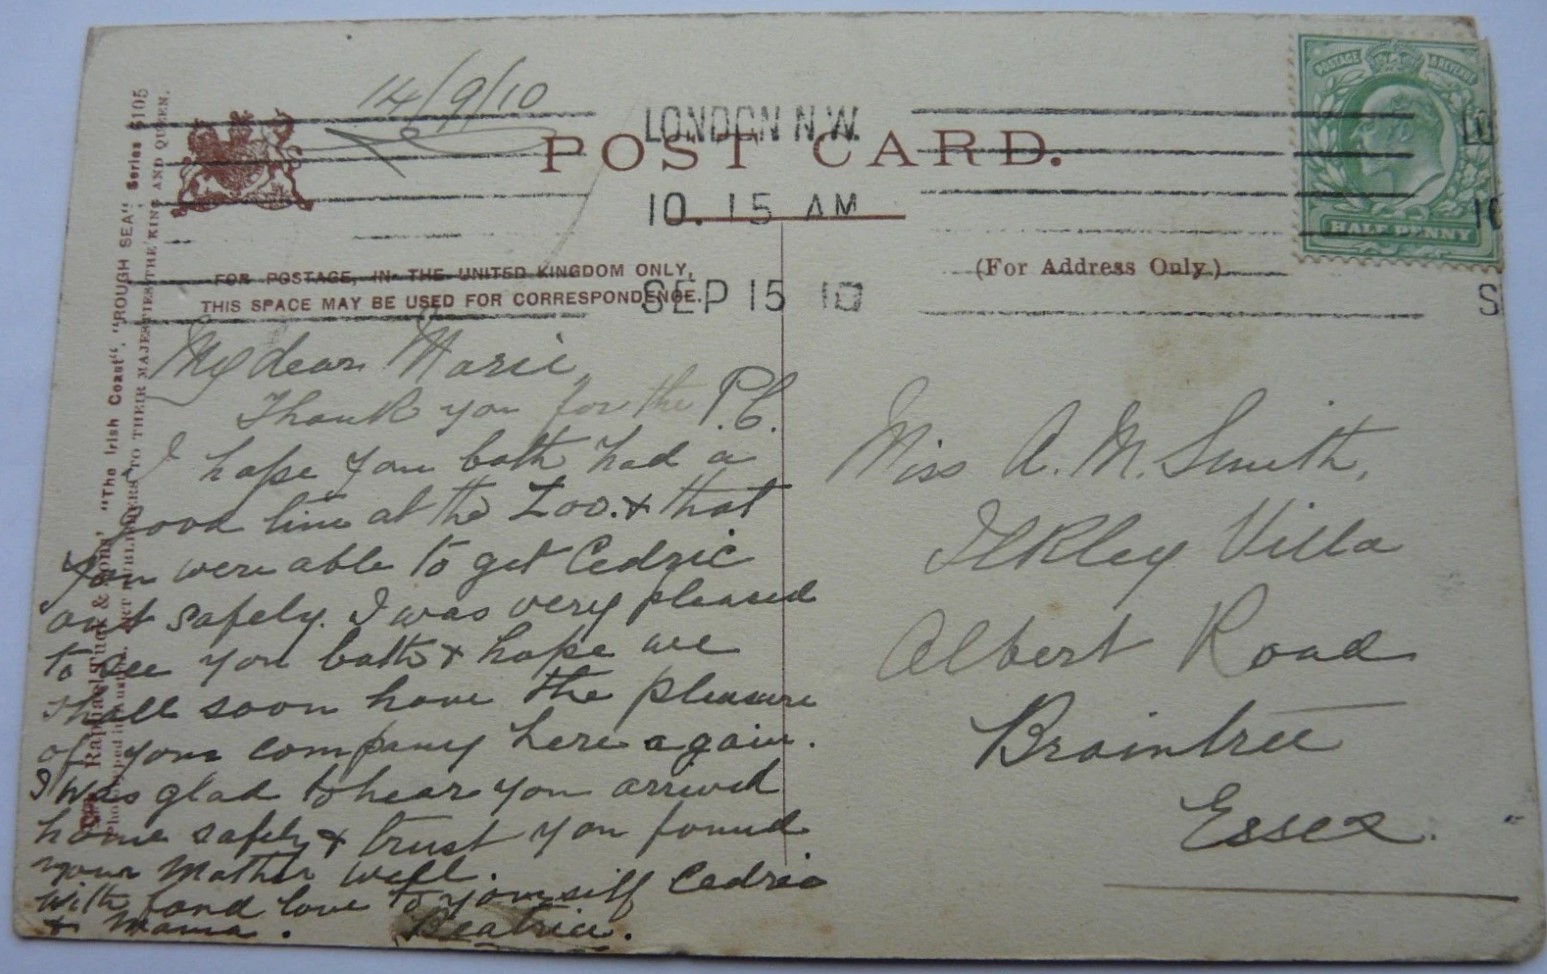 14/9/10
LONDON N.W.
10. 15 AM
SEP 15 10
POST CARD.
POSTAGE & REVENUE
HALF PENNY
FOR POSTAGE, IN THE UNITED KINGDOM ONLY,
THIS SPACE MAY BE USED FOR CORRESPONDENCE.
(For Address Only.)
Raphael Tuck & Sons' "The Irish Coast". "ROUGH SEA". Series 6105
ART PUBLISHERS TO THEIR MAJESTIES THE KING AND QUEEN.
My dear Marie,
Thank you for the P.C.
I hope you both had a
good time at the Zoo. & that
you were able to get Cedric
out safely. I was very pleased
to see you both & hope we
shall soon have the pleasure
of your company here again.
I was glad to hear you arrived
home safely & trust you found
your Mother well.
With fond love to yourself Cedric
& Mama. Beatrice.
Miss A. M. Smith,
Ilkley Villa
Albert Road
Braintree
Essex.